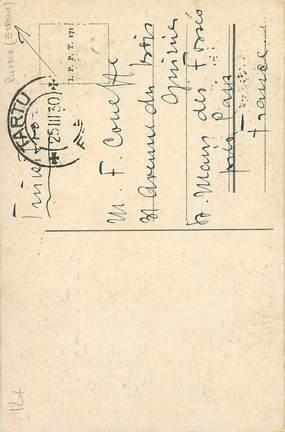 Russie (Estonie)
I. P. P. T. 171
TARTU
25 III 30
M. F. Couette
Avenue du Bois
Guimier
St Maur des Fossés
près Paris
France
12+